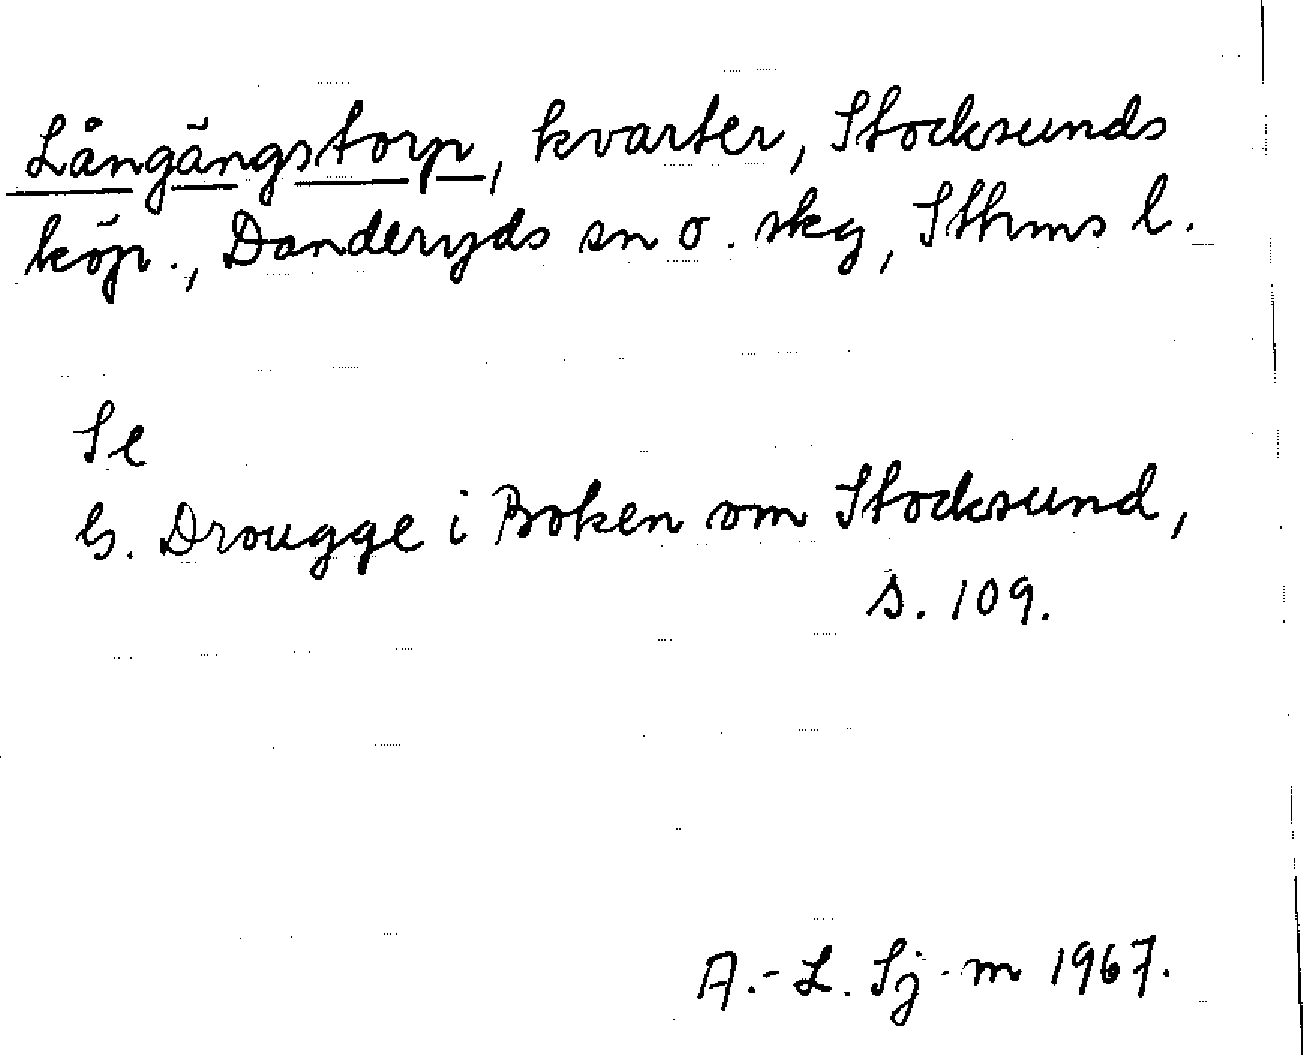 Långängstorp, kvarter, Stocksunds
köp., Danderyds sn o. skg, Sthms l.
Se
G. Drougge i Boken om Stocksund,
s. 109.
A.-L. Sj-m 1967.